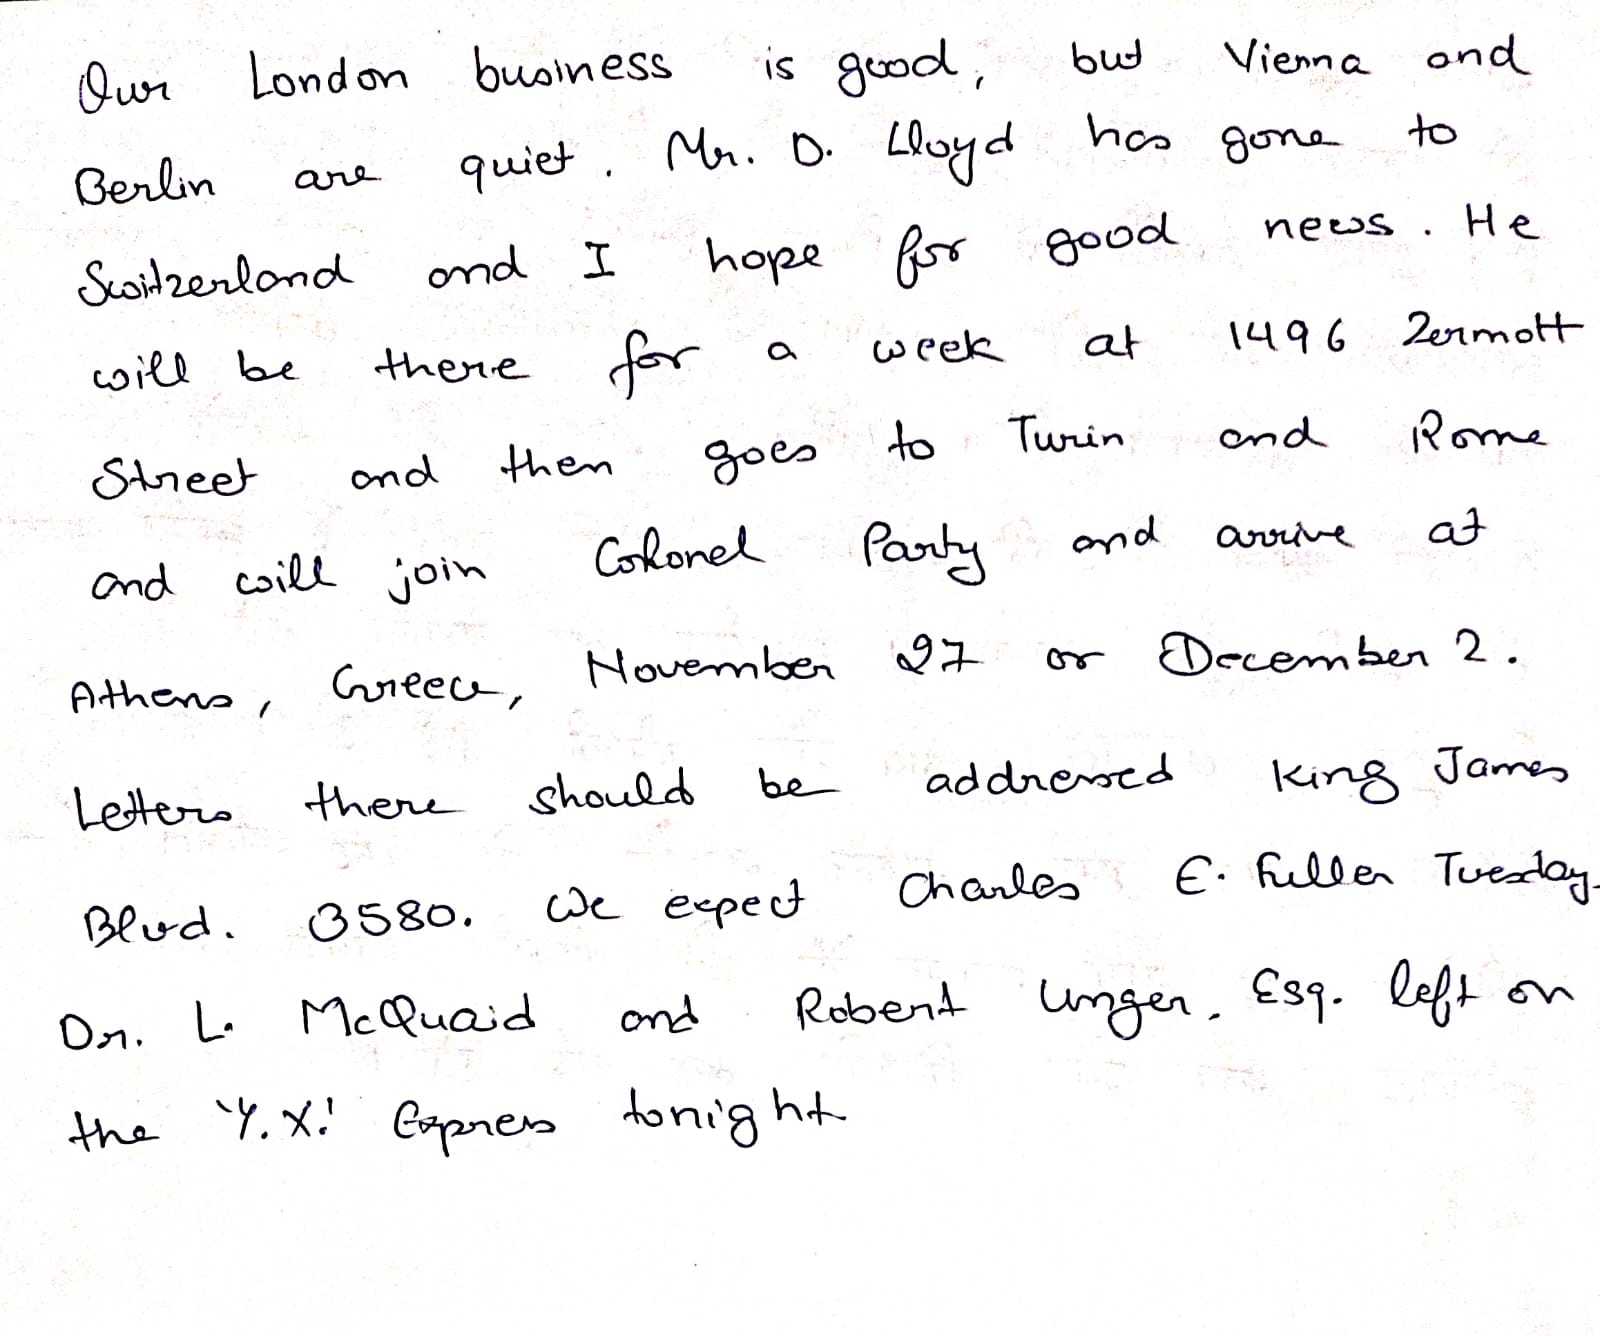 Our London business is good, but Vienna and
Berlin are quiet. Mr. D. Lloyd has gone to
Switzerland and I hope for good news. He
will be there for a week at 1496 Zermott
Street and then goes to Turin and Rome
and will join Colonel Party and arrive at
Athens, Greece, November 27 or December 2.
Letters there should be addressed King James
Blvd. 3580. We expect Charles E. Fuller Tuesday.
Dr. L. McQuaid and Robert Unger, Esq. left on
the 'Y.X.' Express tonight